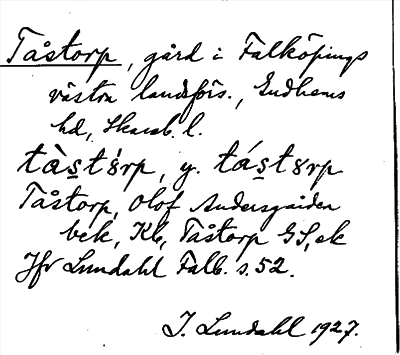 Tåstorp, gård i Falköpings
västra landsförs., Gudhems
hd, Skarab. l.
tàs̱tȣ̀rp, y. tás̱tȣrp
Tåstorp, Olof Andersgården
bek, Kb, Tåstorp GS, ek
Jfr Lundahl Falb. s. 52.
J. Lundahl 1927.